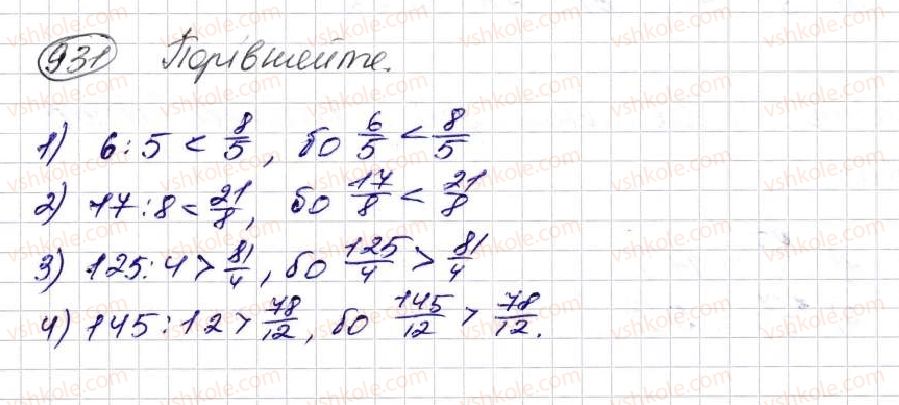 931 Порівняйте.
1) 6 : 5 < 8/5, бо 6/5 < 8/5
2) 17 : 8 < 21/8, бо 17/8 < 21/8
3) 125 : 4 > 81/4, бо 125/4 > 81/4
4) 145 : 12 > 78/12, бо 145/12 > 78/12.
vshkole.com